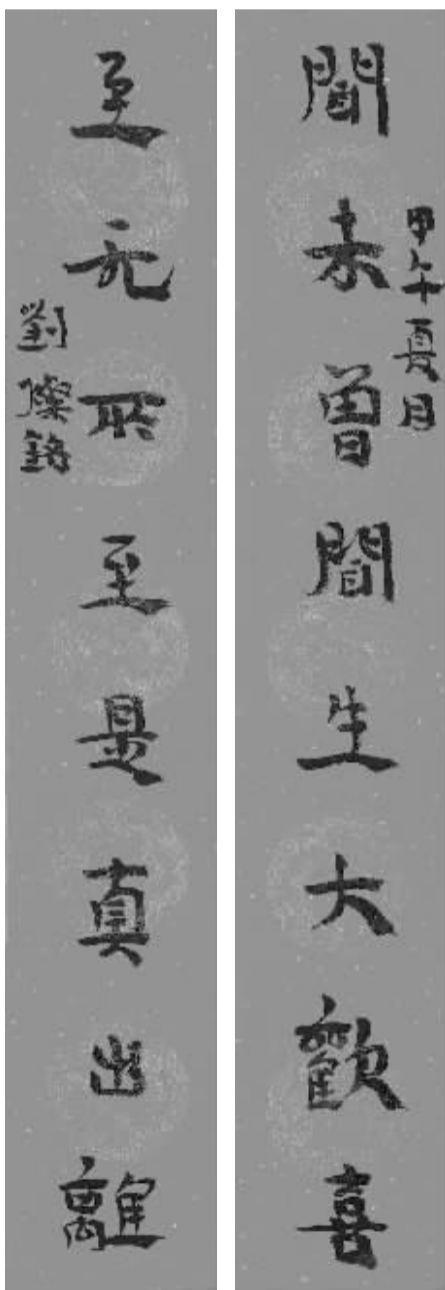 聞未曾聞生大歡喜
甲午夏月
至无所至是真出離
劉燦銘